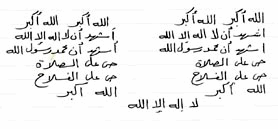 الله أكبر الله أكبر
الله أكبر الله أكبر
اشهد أن لا اله إلا الله
أشهد أن لا اله إلا الله
أشهد أن محمد رسول الله
أشهد أن محمد رسول الله
حى على الصلاة
حى على الصلاة
حى على الفلاح
حى على الفلاح
الله أكبر
الله أكبر
لا إله إلا الله